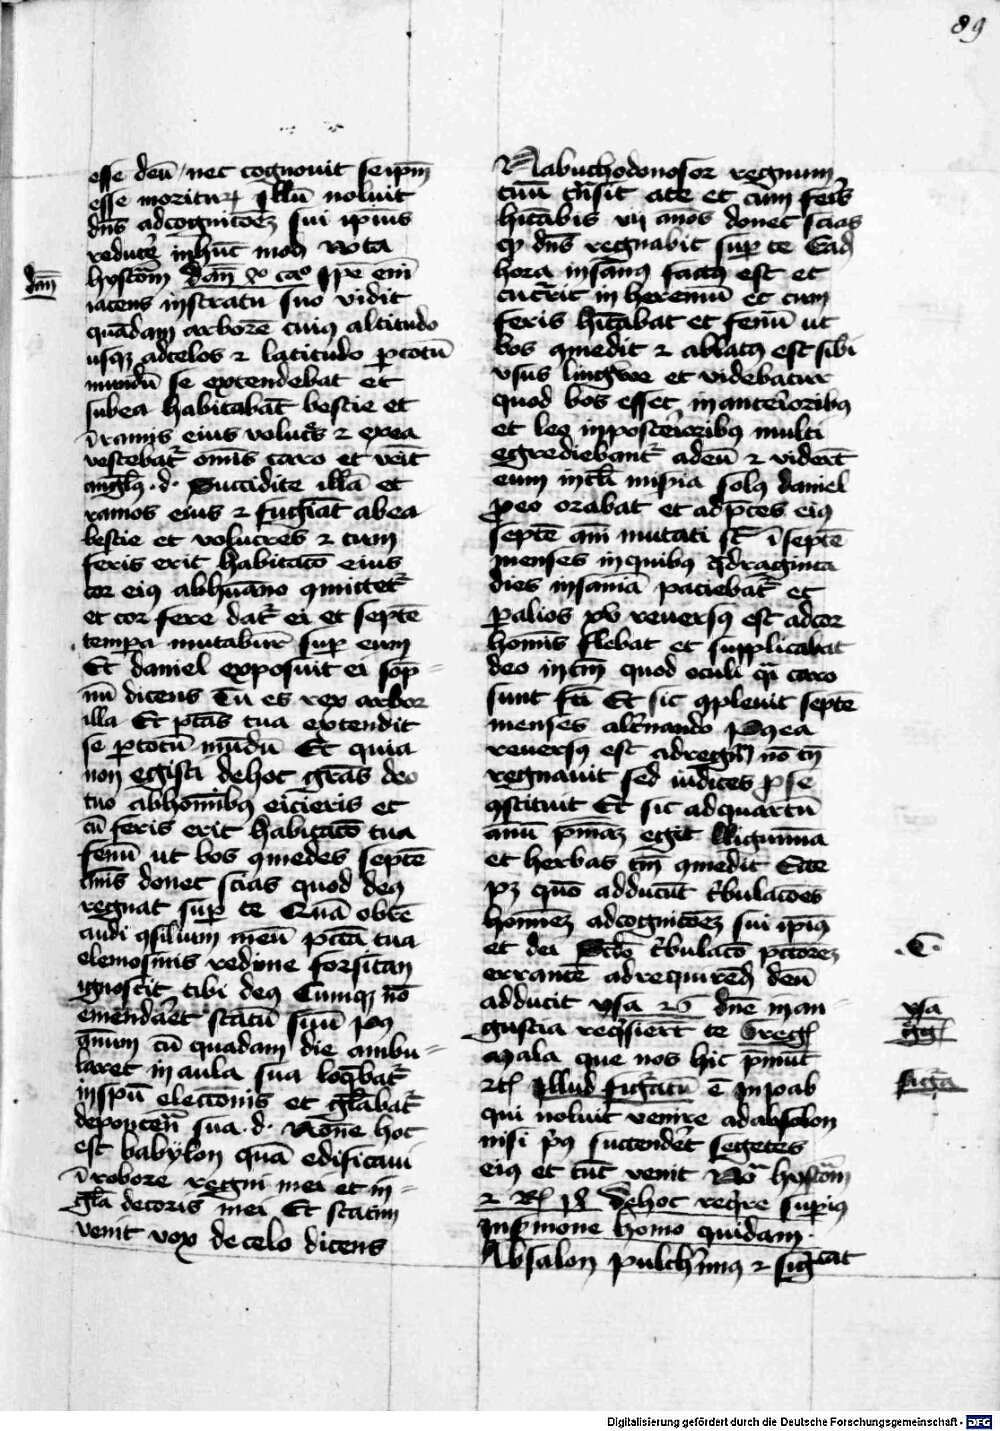 89
esse deū nec cognouit seip̄m
esse moriturꝝ Illū noluit
dn̄s adcognitōeꝫ sui ip̄ius
reducere inhūc modū Nota
hystoriā dan̄ 4o cao Ip̄e em̄
dan̄
iacens instratu suo vidit
quādam arborē cuiꝰ altitudo
usqꝫ adcelos ⁊ latitudo ꝑtotū
mundū se extendebat et
subea habitabāt bestie et
ī ramis eius volucres ⁊ exea
vescebat omīs caro et venit
anglꝰ .d. Succidite illā et
ramos eius ⁊ fugiāt abea
bestie et volucres ⁊ cum
feris erit habitacō eius
cor eiꝰ abhūano ꝯmittet
et cor fere dat ei et septē
tempa mutabunt suꝑ eum
Et daniel exposuit ei somp=
niū dicens Tu es rex arbor
illa Et ptās tua extendit
se ꝑtotū mūdū Et quia
non egisti dehoc grās deo
tuo abhominibꝰ eicieris et
cū feris erit habitacō tua
fenū ut bos ꝯmedes septē
annis donec scias quod deꝰ
regnat suꝑ te Quā obrē
audi ꝯsilium meū pctā tua
elemosinis redime forsitan
ignoscit tibi deꝰ Cumqꝫ nō
emendaret statū suū poꝰ
annum cū quadam die ambu=
laret in aula sua loqbat
inspū elecionis et glabat
depotencia sua .d. Nōne hec
est babylon quā edificaui
ī robore regni mei et in=
glā decoris mei Et statim
venit vox de celo dicens
Nabuchodonosor regnum
tuū trsit ate et cum feris
hitabis vij anos donec scias
qꝫ dn̄s regnabit suꝑ te Ead
hora insanꝰ factꝰ est et
cucurrit in heremū et cum
feris hitabat et fenū ut
bos ꝯmedit ⁊ ablatꝰ est sibi
vsus lingwe et videbatur
quod bos esset inanterioribꝰ
et leo inposterioribꝰ multi
egrediebant adeū ⁊ viderūt
eum intāta miseria solꝰ daniel
ꝓeo orabat et adpces eiꝰ
septē ani mutati sūt ī septē
menses inquibꝰ qdraginta
dies insaniā paciebat et
ꝑalios xl reuersꝰ est adcor
hominis flebat et supplicabat
deo intm̄ quod oculi qi caro
sunt fci Et sic ꝯpleuit septē
menses altnando Postea
reuersꝰ est adregnū nō tn̄
regnauit sed iudices ꝓ se
ꝯstituit Et sic adquartū
annū pniam egit
et herbas tm̄ ꝯmedit Ecce
pꝫ quō adducūt tribulacōes
hominē adcognitōeꝫ sui ip̄iꝰ
et dei Scdo tribulacō pctoreꝫ
.C.
errantē adrequirendū deū
adducit ysa 26 dn̄e in an=
ysa
gustia reqsierūt te Greg
greg
Mala que nos hic pmūt
⁊c Illud figuratū ē in ioab
figura
qui noluit venire adabsolon
nisi prius succenderet segetes
eiꝰ et tūc venit Nota hystoriā
dehoc reqre suꝑius
insermone homo quidam
Absalon pulcherrimꝰ ⁊ significat
Digitalisierung gefördert durch die Deutsche Forschungsgemeinschaft - DFG